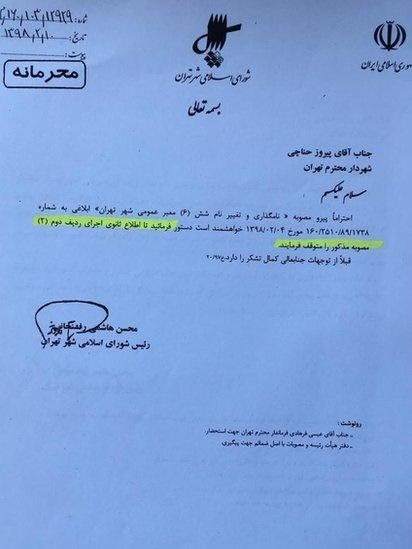 شماره: ۱۶۰٫۱۰۳٫۱۲۹۲۹
تاریخ: ۱۳۹۸٫۲٫۱۰
پیوست:
محرمانه
شورای اسلامی شهر تهران
جمهوری اسلامی ایران
بسمه تعالی
جناب آقای پیروز حناچی
شهردار محترم تهران
سلام علیکم
احتراماً پیرو مصوبه « نامگذاری و تغییر نام شش (۶) معبر عمومی شهر تهران» ابلاغی به شماره
۱۶۰/۲۵۱۰/۸۹/۱۷۳۸ مورخ ۱۳۹۸/۰۲/۰۴ خواهشمند است دستور فرمائید تا اطلاع ثانوی اجرای ردیف دوم (۲)
مصوبه مذکور را متوقف فرمایند.
قبلاً از توجهات جنابعالی کمال تشکر را دارد.
محسن هاشمی رفسنجانی
رئیس شورای اسلامی شهر تهران
رونوشت :
ـ جناب آقای عیسی فرهادی فرماندار محترم تهران جهت استحضار.
ـ دفتر هیأت رئیسه و مصوبات با اصل ضمائم جهت پیگیری.